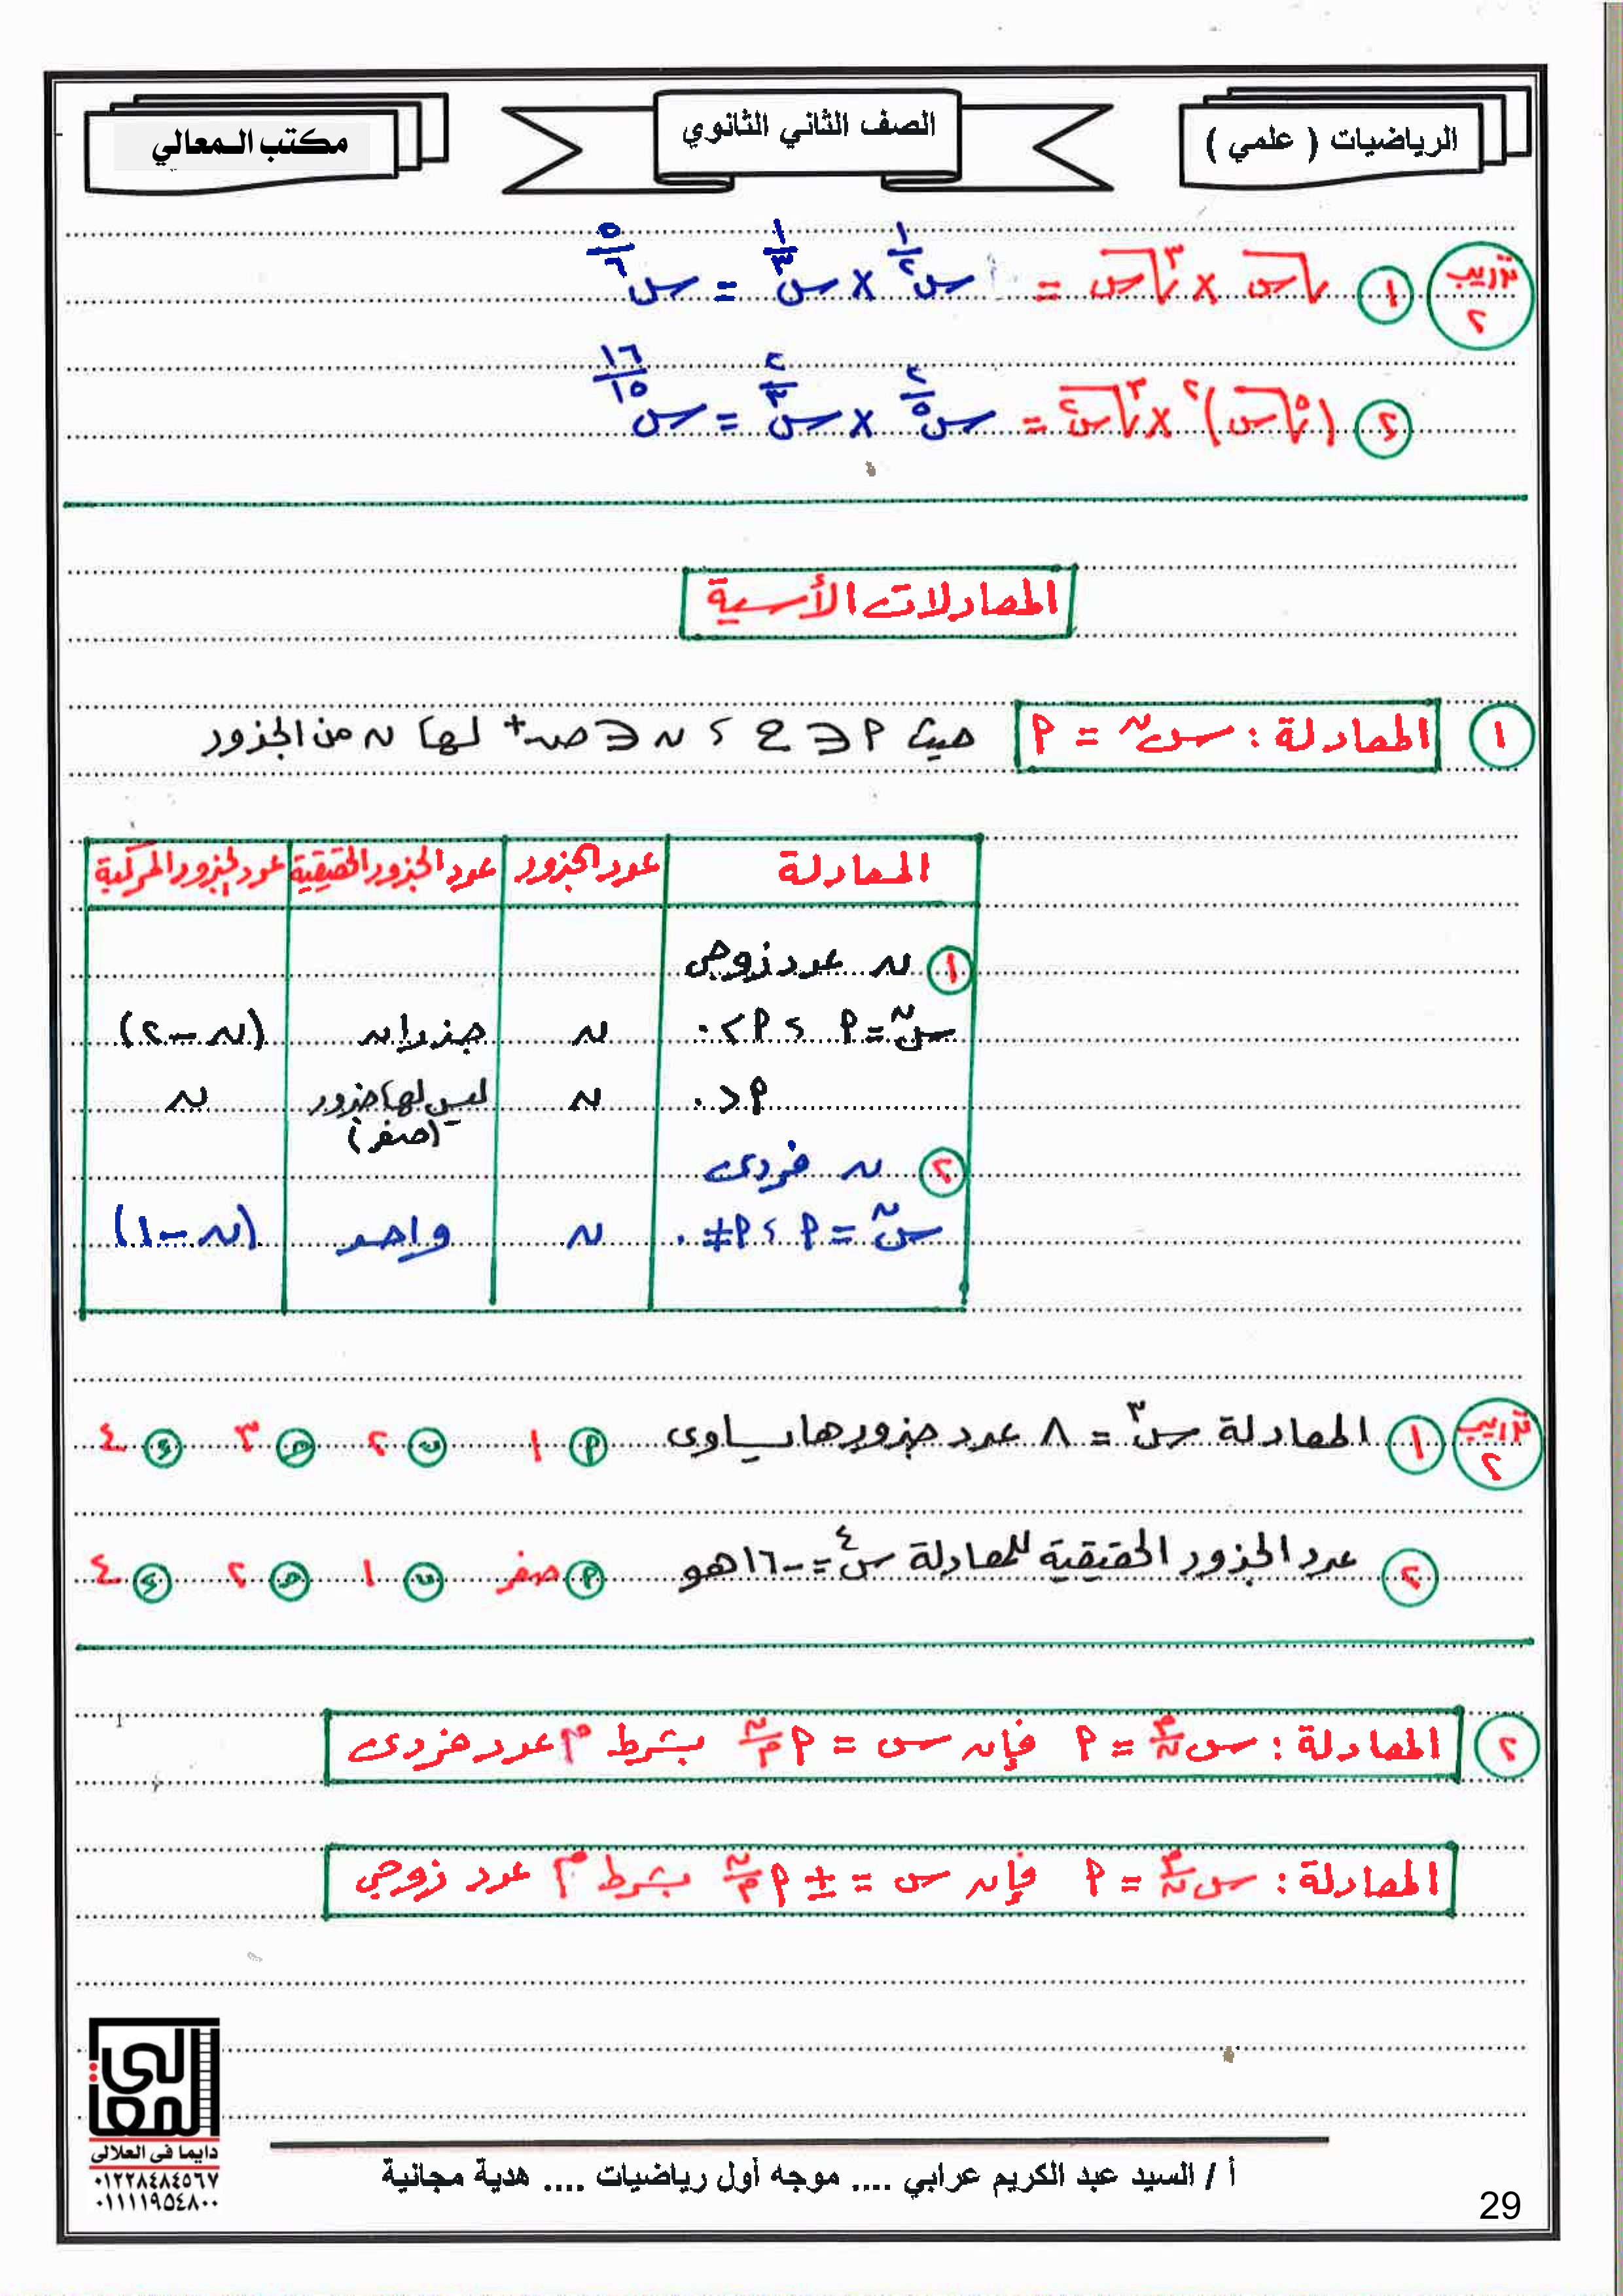 الرياضيات ( علمي )
الصف الثاني الثانوي
مكتب المعالي
تدريب ٢ ① √س × ∛س = س^(١/٢) × س^(١/٣) = س^(٥/٦)
② (⁵√س)^٢ × ∛س^٢ = س^(٢/٥) × س^(٢/٣) = س^(١٦/١٥)
المعادلات الأسية
① المعادلة : س^ن = م حيث م ∈ ع ، ن ∈ ص+ لها ن من الجذور
المعادلة عدد الجذور عدد الجذور الحقيقية عدد الجذور المركبة
① ن عدد زوجى
س^ن = م ، م > ٠ ن جذران (ن - ٢)
م < ٠ ن ليس لها جذور ن
(صفر)
② ن فردى
س^ن = م ، م ≠ ٠ ن واحد (ن - ١)
تدريب ٢ ① المعادلة س^٣ = ٨ عدد جذورها يساوى م ١ ب ٢ ج ٣ د ٤
② عدد الجذور الحقيقية للمعادلة س^٤ = -١٦ هو م صفر ب ١ ج ٢ د ٤
② المعادلة : س^(م/ن) = م فإن س = م^(ن/م) بشرط م عدد فردى
المعادلة : س^(م/ن) = م فإن س = ± م^(ن/م) بشرط م عدد زوجي
المعالى
دايما فى العلالى
٠١٢٢٨٤٨٤٥٦٧
٠١١١١٩٥٤٨٠٠
أ / السيد عبد الكريم عرابي .... موجه أول رياضيات .... هدية مجانية
29